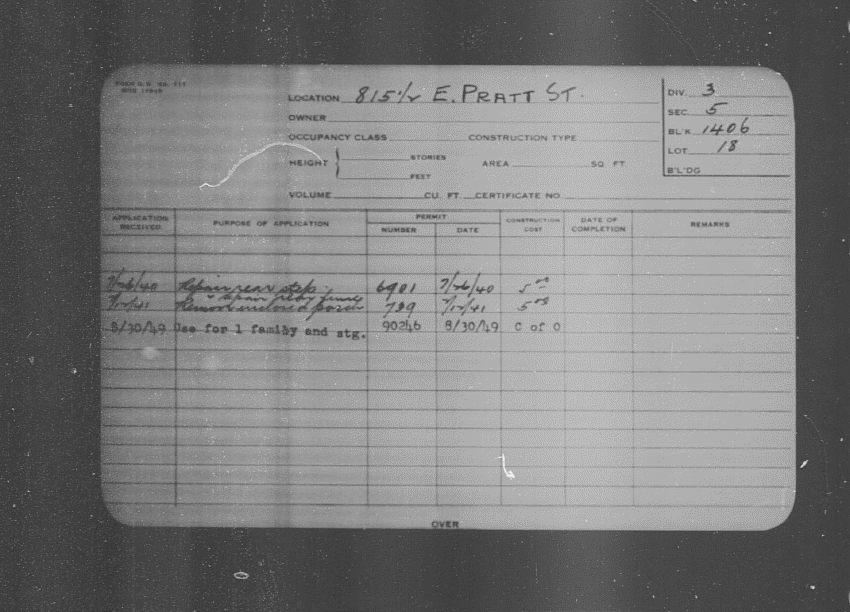 LOCATION 815 1/2 E. PRATT ST.
DIV. 3
SEC. 5
OWNER
BL'K 1406
OCCUPANCY CLASS CONSTRUCTION TYPE
LOT 18
HEIGHT { STORIES AREA SQ. FT.
FEET
B'L'DG
VOLUME CU. FT. CERTIFICATE NO.
APPLICATION RECEIVED PURPOSE OF APPLICATION PERMIT NUMBER DATE CONSTRUCTION COST DATE OF COMPLETION REMARKS
7/26/40 Repair rear step 6901 7/26/40 5 00
& repair
7/12/41 Remove enclosed porch 799 7/12/41 5 00
8/30/49 Use for 1 family and stg. 90246 8/30/49 C of O
OVER